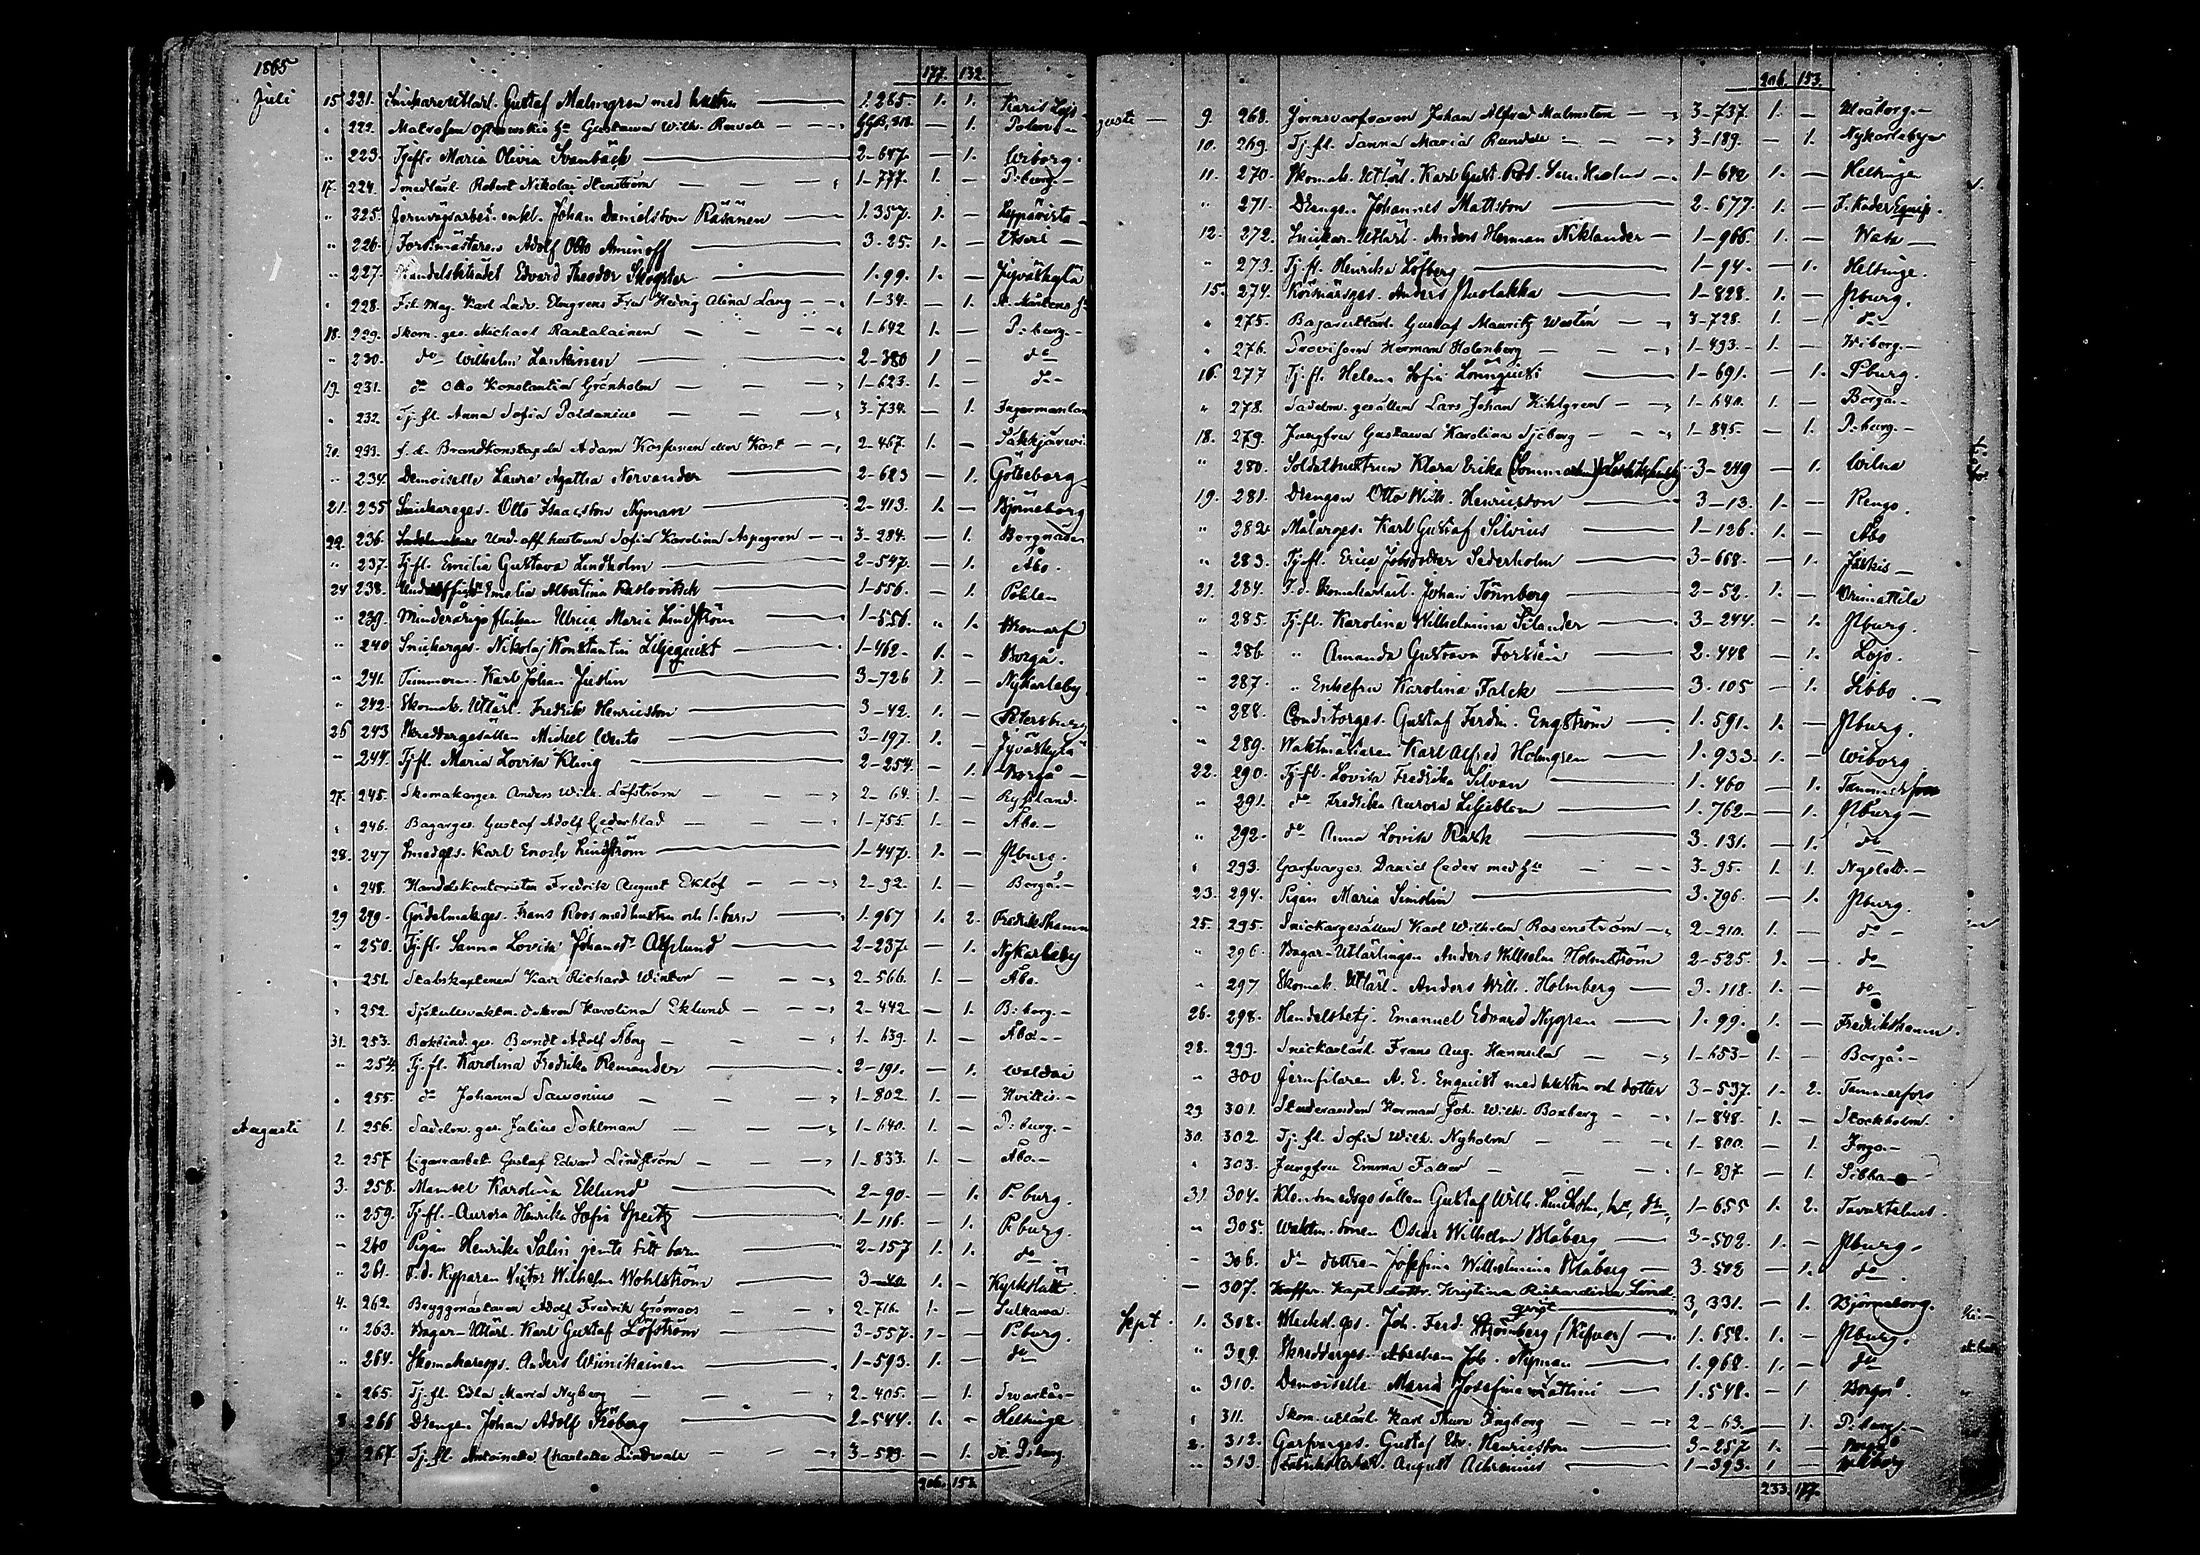 1865
177. 132.
Juli 15 221. Snickareutlärl. Gustaf Malmgren med hustru 1. 285. 1. 1. Karis Lojo
" 222. Matrosen hu Gustawa Wilh. — 1. Polen
" 223. Tjfl. Maria Olivia Svanbäck 2-647. — 1. Wiborg.
17. 224. Smedlärl. Robert Nikolai Stenström 1-777. 1. — P:burg.
" 225. Jernvägsarbet. enkl. Johan Danielsson Räsänen 1. 357. 1. — Leppävirta
" 226. Forstmästaren Adolf Otto Aminoff 3-25. 1. —
" 227. Handelsbiträdet Edvard Theodor Skogster 1. 99. 1. — Jyväskylä
" 228. Fil. Mag. Karl Ludv. Elmgrens Fru Hedvig Alina Lang 1-34. — 1. St. Mårtens
18. 229. Skom. ges. Michael Rantalainen 1-642 1. — P:burg.
" 230. do Wilhelm Lankinen 2-380 1 — do
19. 231. do Otto Konstantin Grönholm 1-623. 1. — do
" 232. Tj. fl. Anna Sofia Poldanius 3-734. — 1. Ingermanlan
20. 233. f. d. Brandkonstapeln Adam Kosfunen eller Kost 2-467. 1. — Säkkjärwi
" 234. Demoiselle Laura Agatha Nervander 2-623 — 1. Göteborg
21. 235 Snickareges. Otto Isaacsson Nyman 2-413. 1. — Björneborg
22. 236. Und. off. hustrun Sofia Karolina Aspegren 3-284. — 1. Borgnäs
" 237. Tjfl. Emilia Gustava Lindholm 2-547. — 1. Åbo.
24 238. Emelie Albertina Kaslovitsch 1-556. — 1. Polen
" 239. Minderåriga flickan Ulrica Maria Lindström 1-556. " 1. Tenala
" 240 Snickarges. Nikolaj Konstantin Liljequist 1-462. 1. — Borgå.
" 241. Timmerm. Karl Johan Justin 3-726 1. — Nykarleby
" 242. Skomak. Utlärl. Fredrik Henricsson 3-42. 1. — Petersburg
26 243 Skreddargesällen Mickel Wento 3-197. 1. — Jyväskylä
" 244. Tjfl. Maria Lovisa Kling 2-254. — 1. Borgå
27. 245. Skomakarges. Anders Wilh. Löfström 2-64. 1. — Ryssland.
" 246. Bagarges. Gustaf Adolf Cederblad 1-755. 1. — Åbo.
28. 247 Smedges. Karl Enoch Lindström 1-447. 1. — Pburg.
" 248. Handelskontoristen Fredrik August Eklöf 2-92. 1. — Borgå.
29 249. Gördelmakges. Frans Roos med hustru och 1. barn 1. 967 1. 2. Fredrikshamn
" 250. Tjfl. Sanna Lovisa Johansdr Asplund 2-237. — 1. Nykarleby
" 251. Stabskaptenen Karl Richard Winter 2-566. 1. — Åbo.
" 252. Sjötullswaktm. dottren Karolina Eklund 2-442. — 1. B:borg.
31. 253. Bokbind. ges. Berndt Adolf Åberg 1-639. 1. — Åbo.
" 254. Tj. fl. Karolina Fredrika Remander 2-191. — 1. Waldai
" 255. do Johanna Savonius 1-802 1. — Hvittis.
Augusti 1. 256. Sadelm. ges. Julius Dahlman 1-640. 1. — P:burg.
2. 257 Cigarrarbet. Gustaf Edvard Lindström 1-833. 1. — Åbo.
3. 258. Mamsel Karolina Eklund 2-90. — 1. P:burg.
" 259. Tj.fl. Aurora Henrika Sofia Speitz 1-116. — 1. P:burg.
" 260 Pigan Henrika Salin jemte sitt barn 2-157 1. 1. do
" 261. F. d. Kyparen Victor Wilhelm Wohlström 3-40. 1. — Kyrkslätt
4. 262. Bryggmästaren Adolf Fredrik Grönroos 2-716. 1. — Sulkawa
" 263. Bagar-Utlärl. Karl Gustaf Löfström 3-557. 1 — P:burg.
" 264. Skomakareges. Anders Wiinikainen 1-593. 1. — do
" 265. Tj. fl. Edla Maria Nyberg 2-405. — 1. Svartå
8 266 Drengen Johan Adolf Fröberg 2-544. 1. — Helsinge
9 267. Tj. fl. Antoinette Charlotta Lindwall 3-583 — 1. St. P:burg
206. 153.
206. 153.
gusti 9 268. Jernsvarfvaren Johan Alfred Malmsten 3-737. 1. — Uleåborg.
10. 269. Tj. fl. Sanna Maria Rundell 3-189. — 1. Nykarleby
11. 270. Skomak. Utlärl. Karl Gust. Rob. 1-642 1. — Helsinge
" 271. Drengen Johannes Mattsson 2-677 1. — F. Kader Equip.
12. 272. Snickar-Utlärl. Anders Herman Niklander 1-966. 1. — Wasa
" 273. Tj. fl. Henrika Löfberg 1-94. — 1. Helsinge.
15. 274. Körsnärsges. Anders Puolakka 1-828. 1. — Pburg.
" 275. Bagareutlärl. Gustaf Mauritz Westin 3-728. 1. — do
" 276. Provisorn Herman Holmberg 1-493. 1. — Wiborg.
16. 277 Tj. fl. Helena Sofia Lönnquist 1-691. — 1. Pburg.
" 278. Sadelm. gesällen Lars Johan Kihlgren 1-640. 1. — Borgå.
18. 279. Jungfru Gustawa Karolina Sjöberg 1-845. — 1. P:burg.
" 280. Soldathustrun Klara Erika 3-249 — 1. Wilna
19. 281. Drengen Otto Wilh. Henricsson 3-13. 1. — Rengo.
" 282. Målarges. Karl Gustaf Silvius 1-126. 1. — Åbo
" 283. Tj.fl. Erica Jobsdotter Sederholm 3-668. — 1. Jäskis
21. 284. F. d. Skomakarlärl. Johan Tönnberg 2-52. 1. — Orimattila
" 285. Tj. fl. Karolina Wilhelmina Silander 3-244. — 1. Pburg.
" 286. " Amanda Gustava Forssén 2. 448 — 1. Lojo.
" 287. " Enkefru Karolina Falck 3. 105 — 1. Sibbo
" 288. Conditorges. Gustaf Ferdin. Engström 1. 591. 1. — Pburg.
" 289. Waktmästaren Karl Alfred Holmgren 1. 933. 1. — Wiborg
22. 290. Tj. fl. Lovisa Fredrika Silvan 1. 460 — 1. Tammerfors
" 291. do Fredrika Aurora Liljeblom 1. 762 — 1. Pburg
" 292. do Anna Lovisa Rask 3. 131. — 1. do
" 293. Garfvarges. Daniel Ceder med hu 3-95. 1. 1. Nyslott.
23. 294. Pigan Maria Simelin 3. 796. — 1. Pburg.
25. 295. Snickargesällen Karl Wilhelm Rosenström 2-210. 1. — do
" 296. Bagar-Utlärlingen Anders Wilhelm Holmström 2-525. 1. — do
" 297 Skomak. Utlärl. Anders Wilh. Holmberg 3. 118. 1. — do
26. 298. Handelsbetj. Emanuel Edvard Nygren 1. 99. 1. — Fredrikshamn.
28. 299. Snickarlärl. Frans Aug. Hannula 1-653 1. — Borgå.
" 300 Jernfilaren A. E. Enquist med hustru och dotter 3-537. 1. 2. Tammerfors
29 301. Studeranden Herman Joh. Wilh. Boxberg 1-848. 1. — Stockholm
30. 302 Tj. fl. Sofia Wilh. Nyholm 1-800. — 1. Ingo.
" 303. Jungfru Emma Falber 1-897. — 1. Sibbo
31. 304. Klensmedsgesällen Gustaf Wilh. Lindholm, hu, dr, 1-655 1. 2. Tavastehus.
" 305. Waktm. sonen Oscar Wilhelm Blåberg 3-502. 1. — Pburg.
" 306. do dottren Josefina Wilhelmina Blåberg 3. 502 — 1. do
307. Koffer. Kapt. dottr. Kristina Richardina Lindqvist 3, 331. — 1. Björneborg.
Sept. 1. 308. Joh. Ferd. Strömberg 1. 658. 1. — Pburg.
" 309. Skreddarges. Abraham Joh. Nyman 1. 968. 1. — do
" 310. Demoiselle Maria Josefina 1. 548. — 1 Borgå.
" 311. Skom. utlärl. Karl Thure Ringborg 2-63. — 1. P:burg.
2. 312. Garfvarges. Gustaf Edv. Henricsson 3-257 1. — Borgå
" 313. Fabriks Arbet. August Achrenius 1-393. 1 — Wiborg
233. 177.